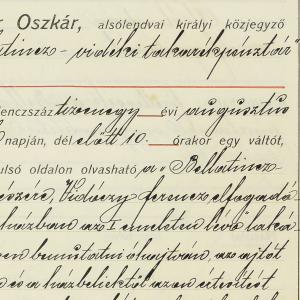 r Oszkár, alsólendvai királyi közjegyző
tincz-vidéki takarékpénztár"
lenczszáz tizenegy évi augusztus
napján, dél előtt 10 órakor egy váltót,
ulsó oldalon olvasható a "Bellatincz
részére, Vidóczy ferencz elfogadó
házban az I emeleten lévő laká
en bemutatni óhajtván, az ajtót
n és a házbeliektől azon értesítést